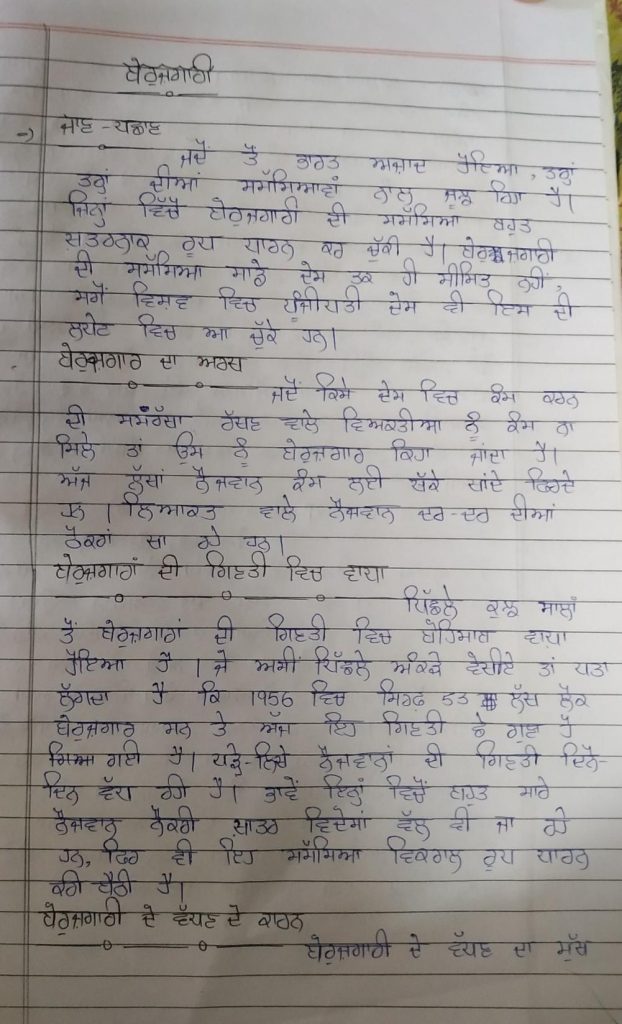 ਬੇਰੁਜ਼ਗਾਰੀ
→ ਜਾਣ-ਪਛਾਣ
ਜਦੋਂ ਤੋਂ ਭਾਰਤ ਅਜ਼ਾਦ ਹੋਇਆ, ਤਰ੍ਹਾਂ
ਤਰ੍ਹਾਂ ਦੀਆਂ ਸਮੱਸਿਆਵਾਂ ਨਾਲ ਜੂਝ ਰਿਹਾ ਹੈ।
ਜਿਨ੍ਹਾਂ ਵਿੱਚੋਂ ਬੇਰੁਜ਼ਗਾਰੀ ਦੀ ਸਮੱਸਿਆ ਬਹੁਤ
ਖ਼ਤਰਨਾਕ ਰੂਪ ਧਾਰਨ ਕਰ ਚੁੱਕੀ ਹੈ। ਬੇਰੁਜ਼ਗਾਰੀ
ਦੀ ਸਮੱਸਿਆ ਸਾਡੇ ਦੇਸ ਤਕ ਹੀ ਸੀਮਿਤ ਨਹੀਂ,
ਸਗੋਂ ਵਿਸ਼ਵ ਵਿਚ ਪੂੰਜੀਪਤੀ ਦੇਸ ਵੀ ਇਸ ਦੀ
ਲਪੇਟ ਵਿਚ ਆ ਚੁੱਕੇ ਹਨ।
ਬੇਰੁਜ਼ਗਾਰ ਦਾ ਅਰਥ
ਜਦੋਂ ਕਿਸੇ ਦੇਸ ਵਿਚ ਕੰਮ ਕਰਨ
ਦੀ ਸਮਰੱਥਾ ਰੱਖਣ ਵਾਲੇ ਵਿਅਕਤੀਆ ਨੂੰ ਕੰਮ ਨਾ
ਮਿਲੇ ਤਾਂ ਉਸ ਨੂੰ ਬੇਰੁਜ਼ਗਾਰ ਕਿਹਾ ਜਾਂਦਾ ਹੈ।
ਅੱਜ ਲੱਖਾਂ ਨੌਜਵਾਨ ਕੰਮ ਲਈ ਧੱਕੇ ਖਾਂਦੇ ਫਿਰਦੇ
ਹਨ। ਲਿਆਕਤ ਵਾਲੇ ਨੌਜਵਾਨ ਦਰ-ਦਰ ਦੀਆਂ
ਠੋਕਰਾਂ ਖਾ ਰਹੇ ਹਨ।
ਬੇਰੁਜ਼ਗਾਰਾਂ ਦੀ ਗਿਣਤੀ ਵਿਚ ਵਾਧਾ
ਪਿੱਛਲੇ ਕੁਝ ਸਾਲਾਂ
ਤੋਂ ਬੇਰੁਜ਼ਗਾਰਾਂ ਦੀ ਗਿਣਤੀ ਵਿਚ ਬੇਹਿਸਾਬ ਵਾਧਾ
ਹੋਇਆ ਹੈ। ਜੇ ਅਸੀਂ ਪਿੱਛਲੇ ਅੰਕੜੇ ਵੇਖੀਏ ਤਾਂ ਪਤਾ
ਲੱਗਦਾ ਹੈ ਕਿ 1956 ਵਿਚ ਸਿਰਫ਼ 53 ਲੱਖ ਲੋਕ
ਬੇਰੁਜ਼ਗਾਰ ਸਨ ਤੇ ਅੱਜ ਇਹ ਗਿਣਤੀ ਛੇ ਗੁਣਾ ਹੋ
ਗਿਆ ਗਈ ਹੈ। ਪੜ੍ਹੇ-ਲਿਖੇ ਨੌਜਵਾਨਾਂ ਦੀ ਗਿਣਤੀ ਦਿਨੋ-
ਦਿਨ ਵੱਧ ਰਹੀ ਹੈ। ਭਾਵੇਂ ਇਨ੍ਹਾਂ ਵਿਚੋਂ ਬਹੁਤ ਸਾਰੇ
ਨੌਜਵਾਨ ਨੌਕਰੀ ਖ਼ਾਤਰ ਵਿਦੇਸਾਂ ਵੱਲ ਵੀ ਜਾ ਰਹੇ
ਹਨ, ਫਿਰ ਵੀ ਇਹ ਸਮੱਸਿਆ ਵਿਕਰਾਲ ਰੂਪ ਧਾਰਨ
ਕਰੀ ਬੈਠੀ ਹੈ।
ਬੇਰੁਜ਼ਗਾਰੀ ਦੇ ਵੱਧਣ ਦੇ ਕਾਰਨ
ਬੇਰੁਜ਼ਗਾਰੀ ਦੇ ਵੱਧਣ ਦਾ ਮੁੱਖ